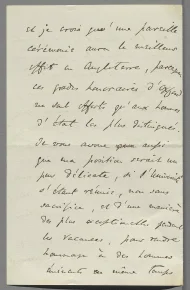 et je crois qu'une pareille
cérémonie aura le meilleur
effet en Angleterre, parceque
ces grades honoraires d'Oxford
ne sont offerts qu'aux hommes
d'État les plus distingués.
Je vous avoue aussi
que ma position serait un
peu délicate, si l'Université
s'étant réunie, non sans
sacrifice, et d'une manière
des plus exceptionnelles pendant
les vacances, pour rendre
hommage à des hommes
éminents en même temps